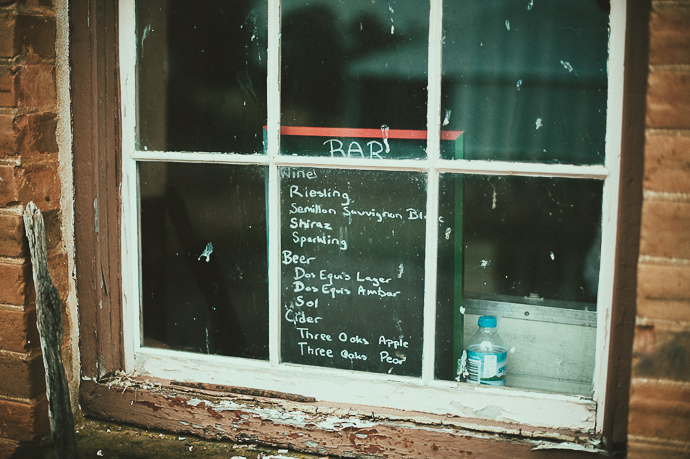 BAR
Wine
Riesling
Semillon Sauvignon Blanc
Shiraz
Sparkling
Beer
Dos Equis Lager
Dos Equis Ambar
Sol
Cider
Three Oaks Apple
Three Oaks Pear